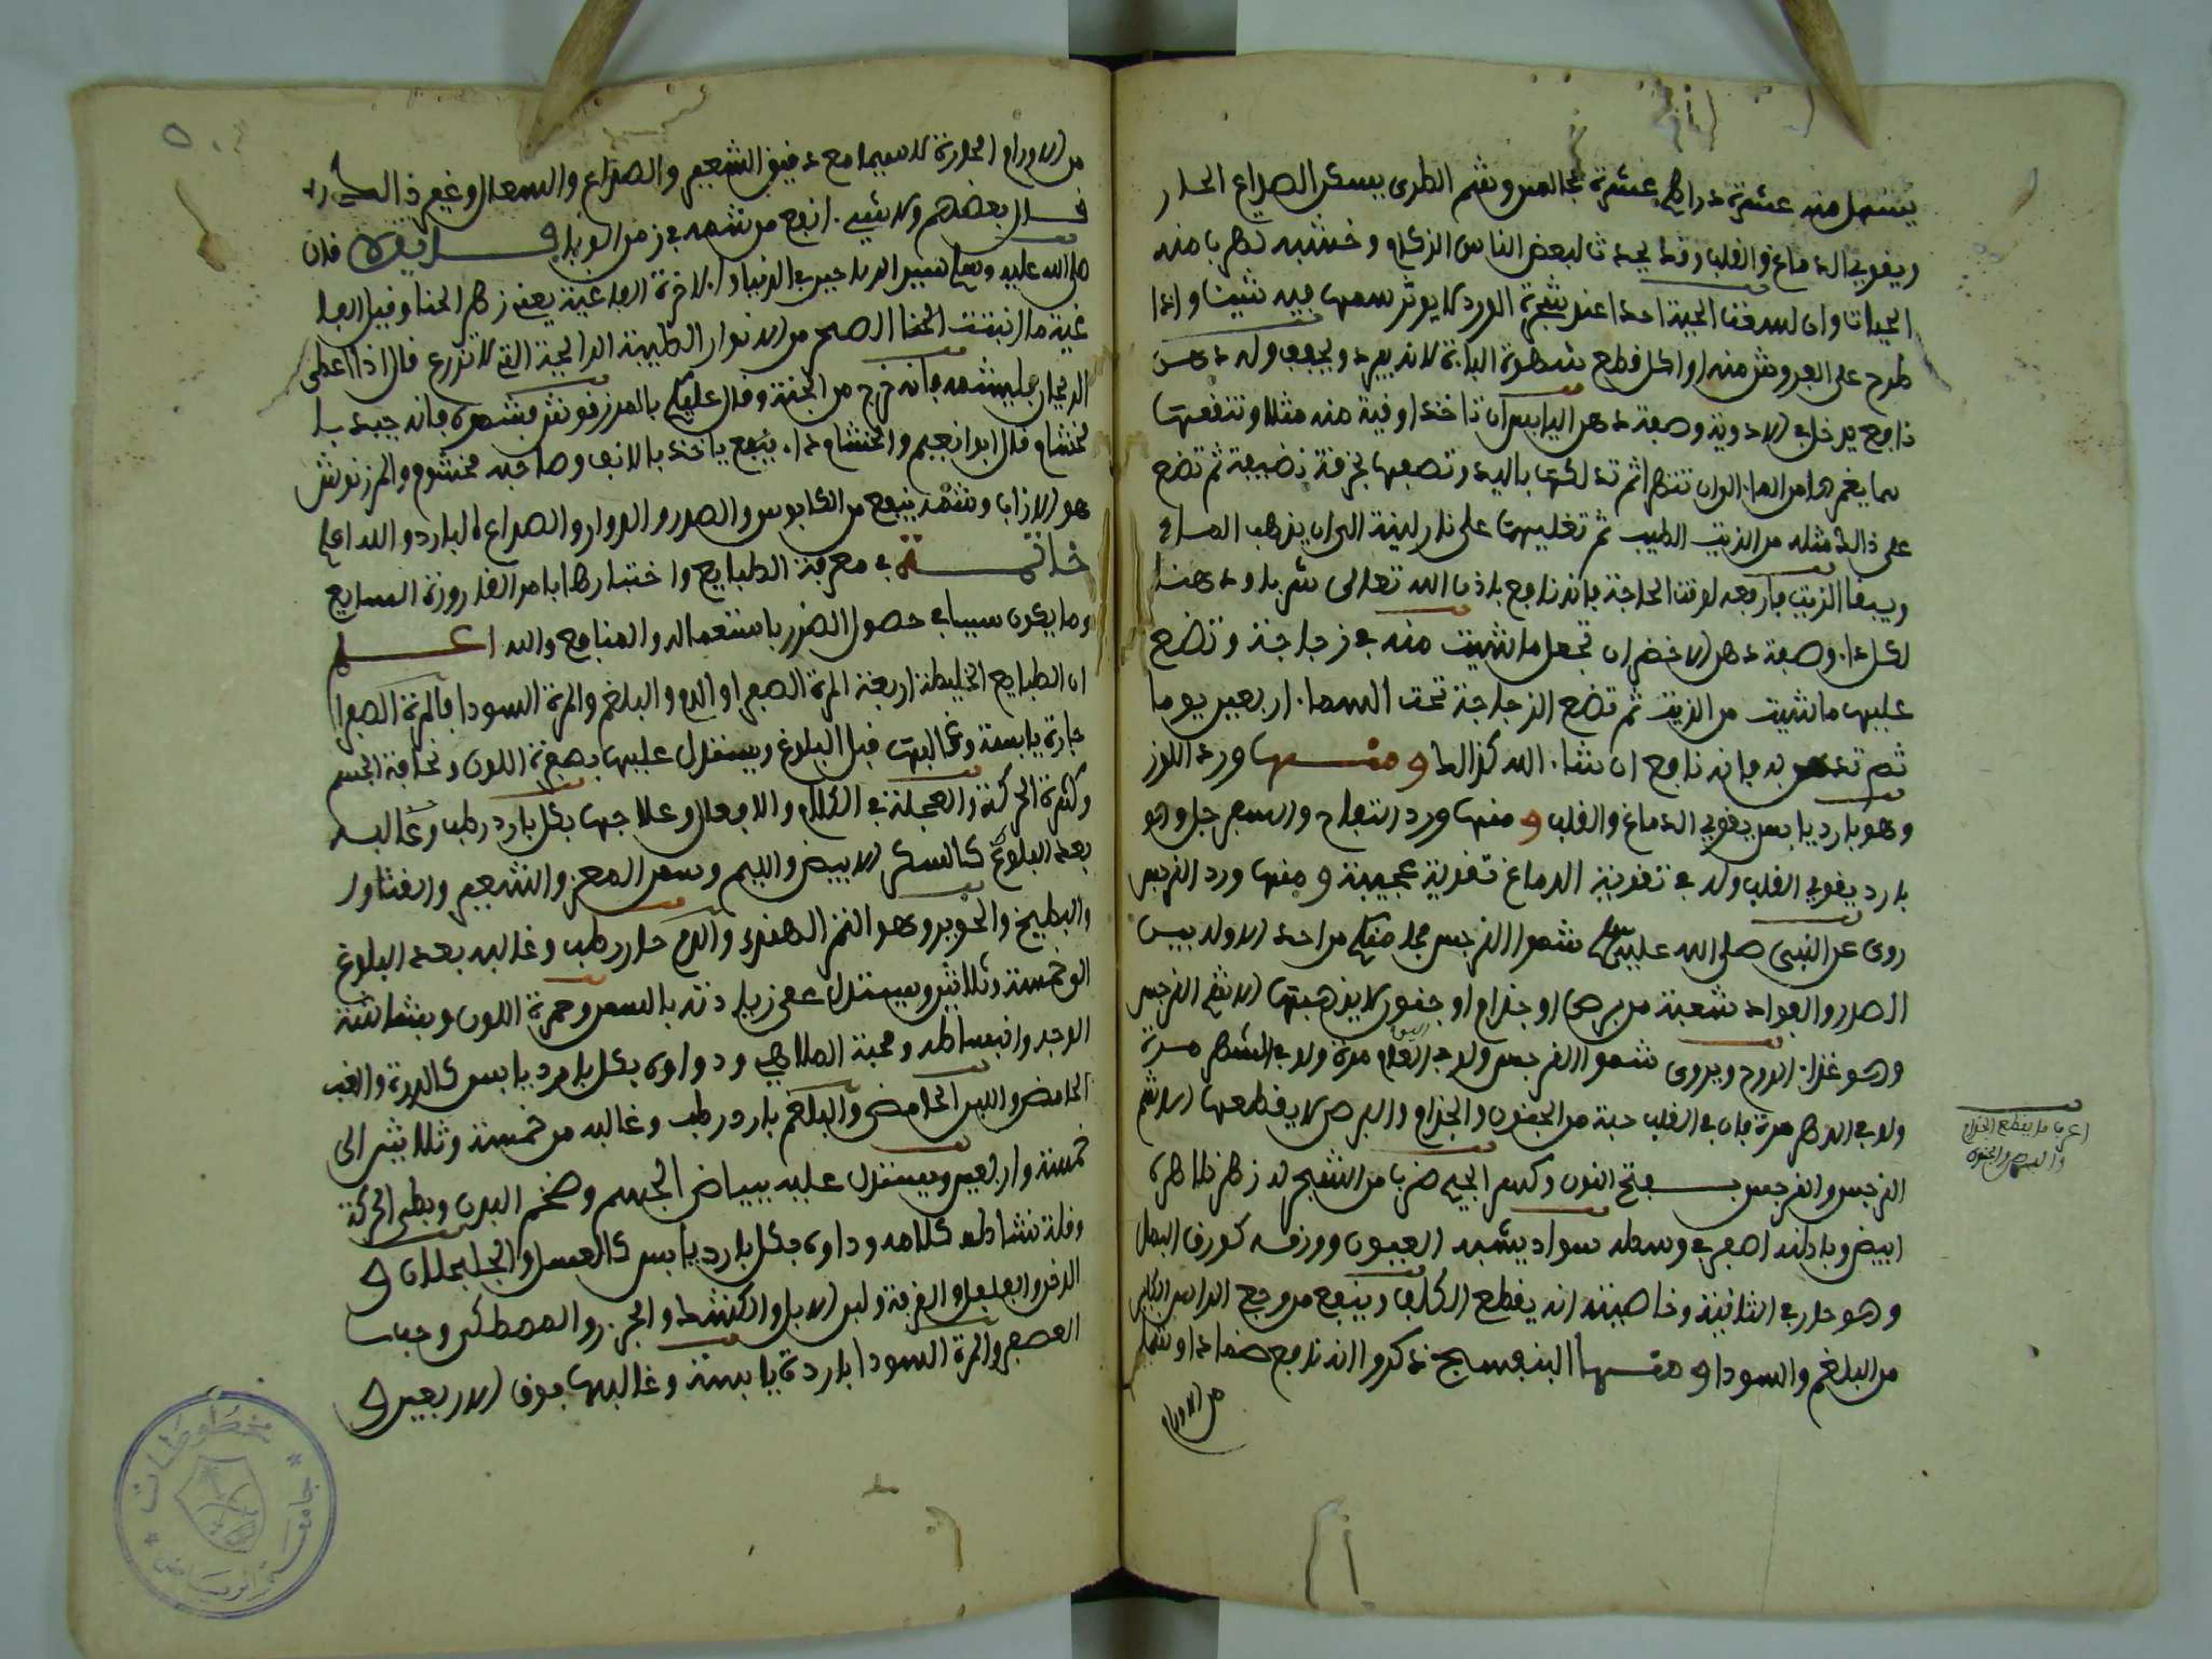 يسهل منه عشرة دراهم عشرة مجالس وشم الطري يسكن الصداع الحار
ويقوي الدماغ والقلب وقد يحدث لبعض الناس الزكام وخشبه تهربا منه
الحيات وان لسعت الحية احدا عند شجرة الورد لا يوثر سمها فيه شيئا واذا
طرح على الفروش منه او اكل قطع شهوة الباءة لانه يبرد ويجفف وله دهن
نافع يدخل في الادوية وصفة دهن اليابس ان تاخذ اوفية منه مثلا وتنقعها
بما يغمرها من الماء الى ان ثم تدلكها باليد وتصفيها بخرقة نضيفة ثم تضع
على ذالك مثله من الزيت الطيب ثم تغليها على نار لينة الى ان يذهب الماء
ويبقا الزيت فارفعه لوقت الحاجة فانه نافع باذن الله تعالى شربا ودهنا
لكل داء وصفة دهن الاخضر ان تجعل ما شيت منه في زجاجة وتضع
عليها ما شيت من الزيت ثم تضع الزجاجة تحت السماء اربعين يوما
ثم تدهن به فانه نافع ان شاء الله كذالك ومنها ورد اللوز
وهو بارد يابس يقوي الدماغ والقلب ومنها ورد التفاح والسفرجل وهو
بارد يقوي القلب وله في تقوية الدماغ تقوية عجيبة ومنها ورد النرجس
روى عن النبي صلى الله عليه وسلم شموا النرجس فما منكم من احد الا وله بين
الصدر والفواد شعبة من برص او جذام او جنون لا يذهبها الا شم النرجس
وهو غذاء الروح ويروى شموا النرجس ولو في العام مرة ولو في الشهر مرة
ولو في الدهر مرة فان في القلب حبة من الجنون والجذام والبرص لا يقطعها الا شم
النرجس والنرجس بفتح النون وكسر الجيم ضربا من الشجر له زهر ظاهره
ابيض وباطنه اصفر في وسطه سواد يشبه العيون وورقه كورق البصل
وهو حار في الثانية وخاصيته انه يقطع الكلف وينفع من وجع الراس الكاين
من البلغم والسودا ومنها البنفسج ذكروا انه نافع ضمادا
من الاورام
اعرف ما يقطع الجذام
والبرص والجنون
من الاورام الحارة لا سيما مع دقيق الشعير والصداع والسعال وغير ذالك
قال بعضهم ولا شيء انفع من شمه في زمن الوباء فان
صلى الله عليه وسلم سيد الرياحين في الدنيا والاخرة الفاغية يعني زهر الحنا وقيل الفا
غية ما انبتت الصحر من الانوار الطيبة الرايحة التي لا تزرع قال اذا اعطى
الريحان فليشمه فانه خرج من الجنة وقال عليكم بالمرزقوش فشموه فانه جيد
لخشام قال ابوا نعيم والخشام داء ياخذ بالانف وصاحبه مخشوم والمرزنوش
هو الازاب وشمه ينفع من الكابوس والصدر والدوار والصداع البارد والله اعلم
خاتمة في معرفة الطبايع واختبارها اما من القارورة السايع
وما يكون سببا في حصول الضرر باستعماله والمنافع والله اعلم
ان الطبايع الخليطة اربعة المرة الصفرا والدم والبلغم والمرة السودا فالمرة الصفرا
حارة يابسة وغالبها قبل البلوغ ويستدل عليها بصفرة اللون ونحافة الجسم
وكثرة الحركة والعجلة في الكلام والافعال وعلاجها بكل بارد رطب وغالبه
بعد البلوغ كالسكر الابيض واللبم وسمن المعز والشعير والقثاوا
والبطيخ والحوير وهو التمر الهندي والدم حار رطب وغالبه بعد البلوغ
الى خمسة وثلاثين ويستدل على زيادته بالسمن وحمرة اللون وبشاشة
الوجه وانبساطه ومحبة الملاهي ودواوه بكل بارد يابس كالذرة والعنب
الحامض واللبن الحامض والبلغم بارد رطب وغالبه من خمسة وثلاثين الى
خمسة واربعين ويستدل عليه ببياض الجسم وضخم البدن وبطي الحركة
وقلة نشاطه كلامه وداوه بكل بارد يابس كالعسل والجلجلان و
الدخن والفلفل والقرفة ولبن الابل والكشط والجزر والمصطكى وحباب
العصفر والمرة السودا باردة يابسة وغالبها فوق الاربعين و
مخطوطات
جامعة الرياض